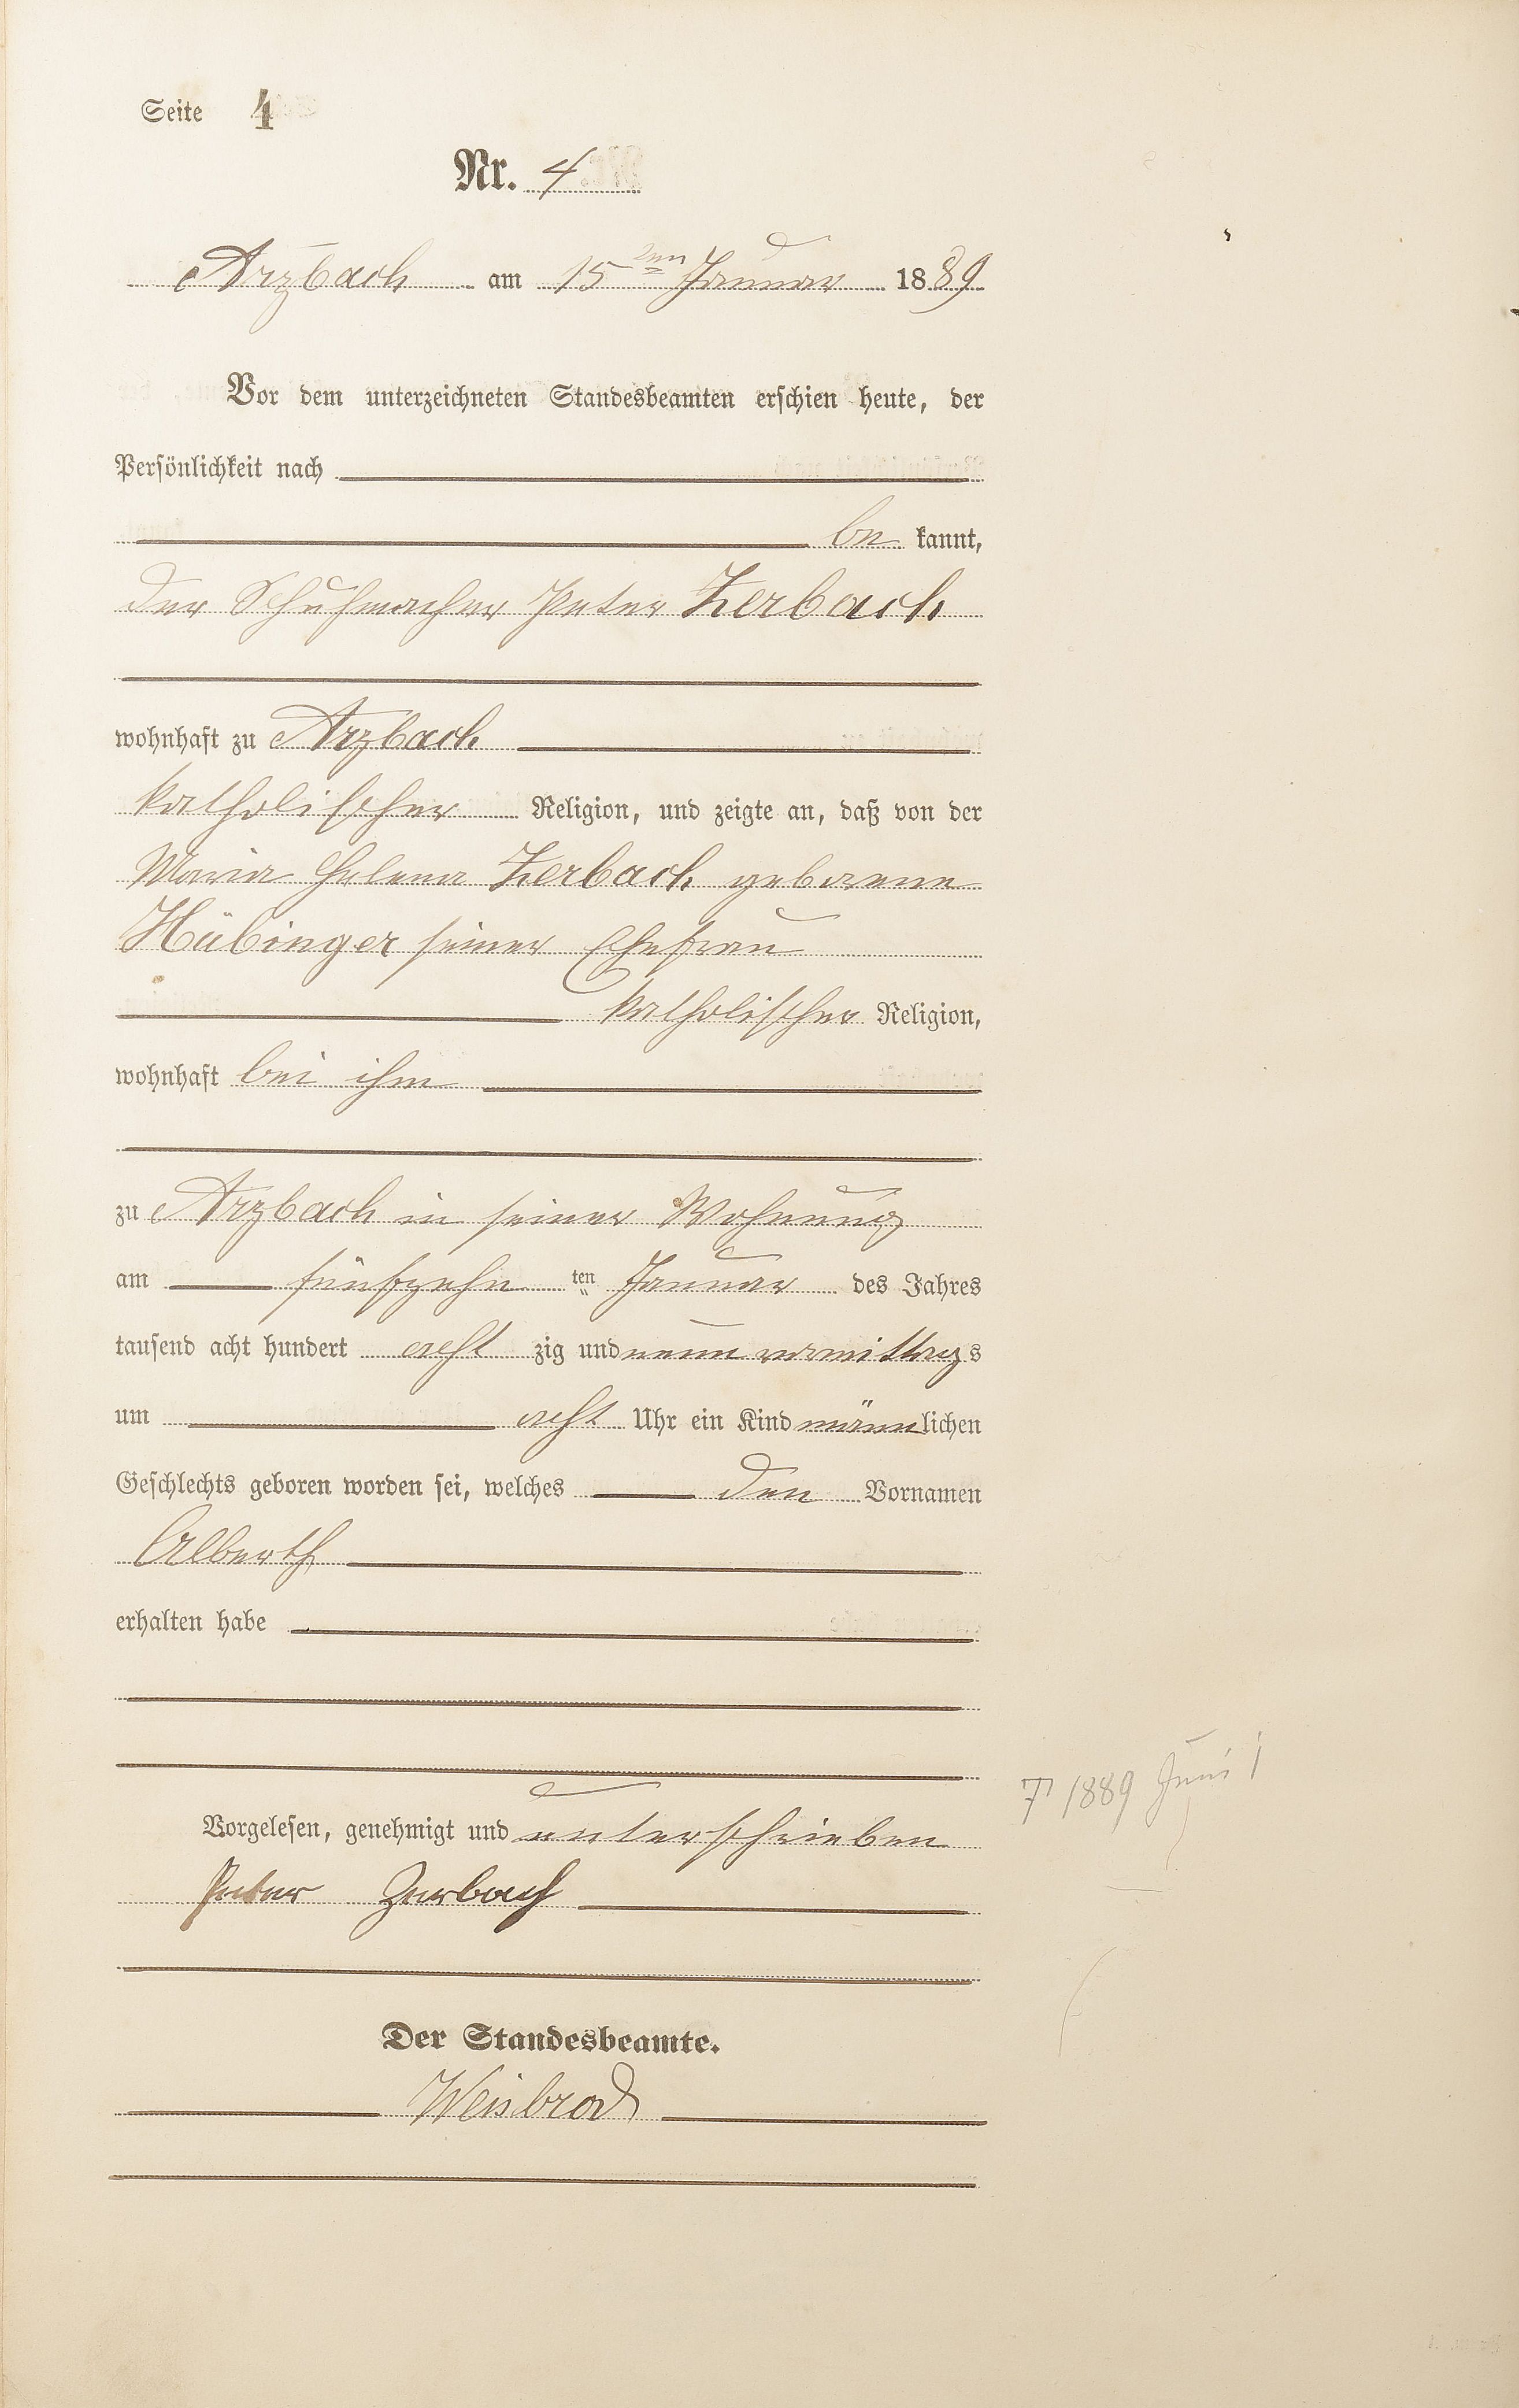 Seite 4
Nr. 4
Arzbach am 15ten Januar 1889
Vor dem unterzeichneten Standesbeamten erschien heute, der
Persönlichkeit nach
be kannt,
der Schuhmacher Peter Zerbach
wohnhaft zu Arzbach
katholischer Religion, und zeigte an, daß von der
Maria Helena Zerbach geborene
Hübinger seiner Ehefrau
katholischer Religion,
wohnhaft bei ihm
zu Arzbach in seiner Wohnung
am fünfzehn ten Januar des Jahres
tausend acht hundert acht zig und neun vormittags
um acht Uhr ein Kind männlichen
Geschlechts geboren worden sei, welches den Vornamen
Alberth
erhalten habe
7 1889 Juni
Vorgelesen, genehmigt und unterschrieben
Peter Zerbach
Der Standesbeamte.
Weisbrod